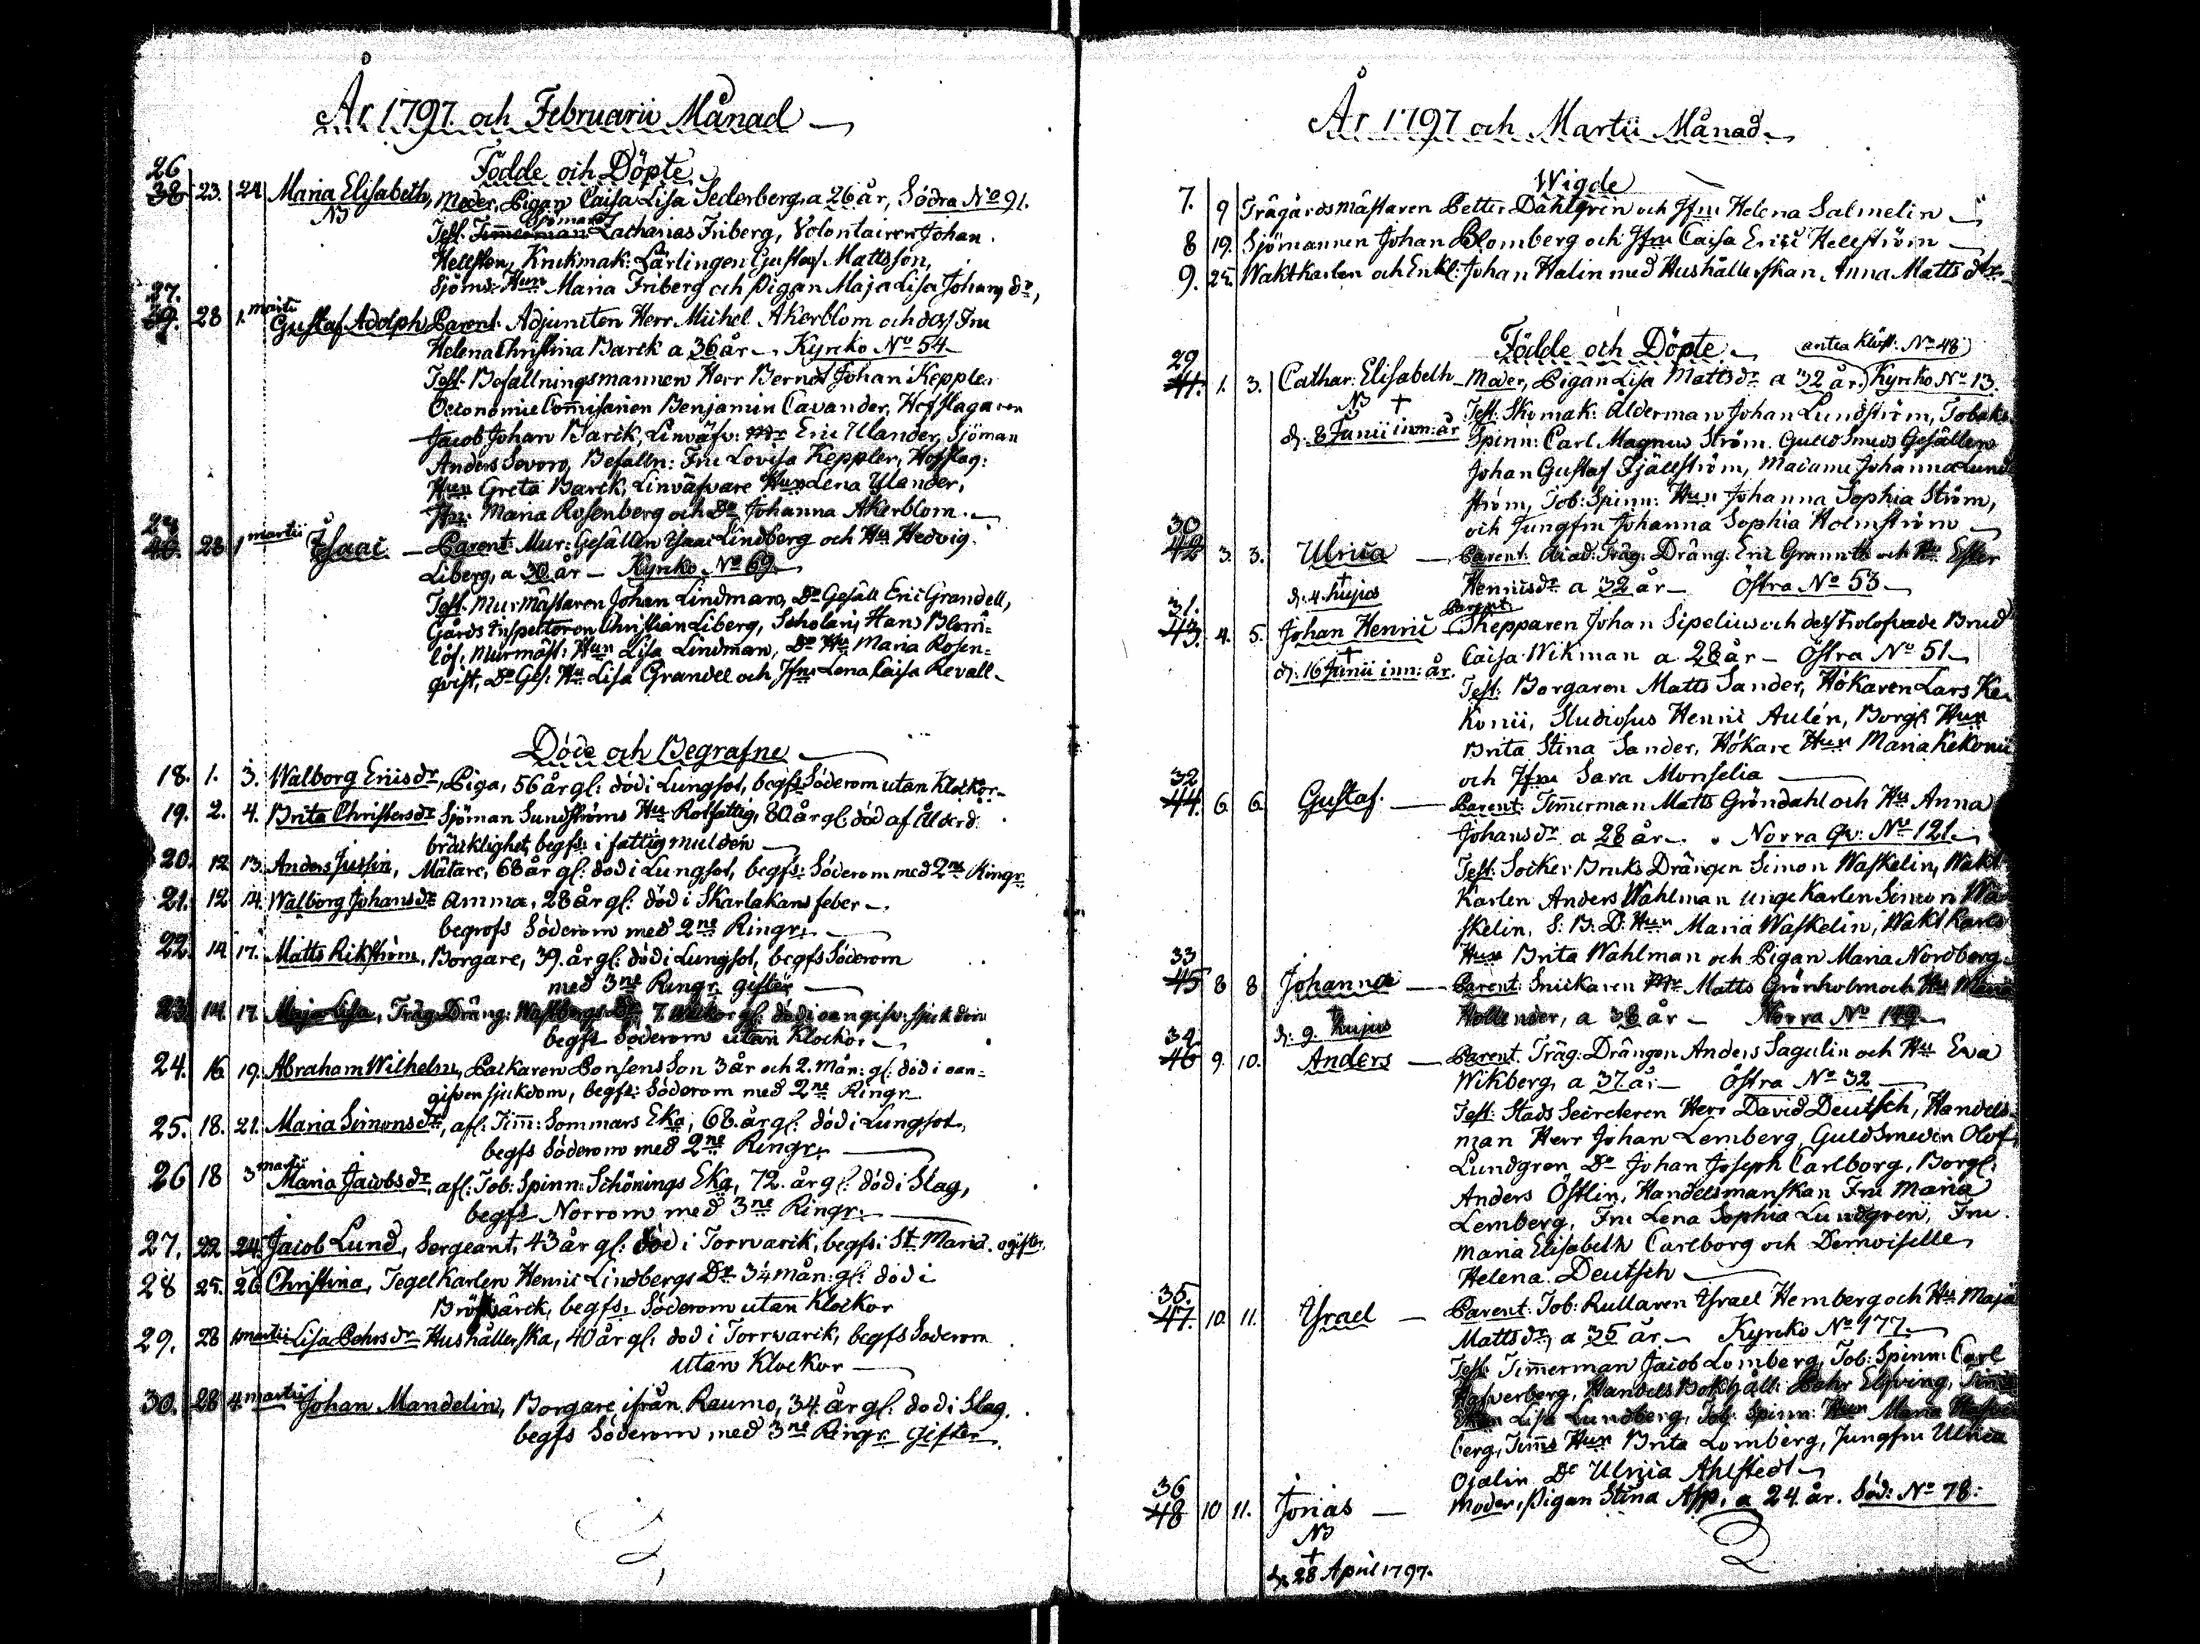 År 1797. och Februarii Månad
Födde och Döpte
26
38 23. 24 Maria Elisabeth, Moder, Pigan Caisa Lisa Sederberg, a 26 år, Södra No 91.
NB
Sjöman
Test. Timmerman Zacharias Friberg, Volontairen Johan
Hellsten, Krukmak: Lärlingen Gustaf Mattsson,
Sjöms: Hun Maria Friberg och Pigan Maja Lisa Johans dr,
27.
39. 28 1. martii Gustaf Adolph Parent. Adjuncten Herr Michel Akerblom och dess Fru
Helena Christina Barck a 36 år Kyrcko No 54
Test. Befallningsmannen Herr Berndt Johan Keppler
Oeconomie Commisarien Benjamin Cavander, Hofslagaren
Jacob Johan Barck, Linväfv: Mr Eric Ulander, Sjöman
Anders Sevoro, Befalln: Fru Lovisa Keppler, Hofslag:
Hun Greta Barck, Linväfvare Hun Lena Ulander,
Jfr: Maria Rosenberg och Do Johanna Akerblom.
28
40. 28 1 martii Isaac Parent: Mur: Gesällen Isaac Lindberg och Hu Hedvig
Liberg, a 30 år Kyrcko No 69
Test. Murmästaren Johan Lindman, Do Gesäll Eric Grandell,
Gårds Inspectoren Christian Liberg, Scholaris Hans Blom:
löf: Murmäst: Hun Lisa Lindman, Do Hu Maria Rosen=
qvist, Do Ges: Hu Lisa Grandell och Jfru Lena Caisa Revall
Döde och Begrafne
18. 1. 3. Walborg Ericsdr, Piga, 56 år gl: död i Lungsot, begfs Söderom utan Klockor
19. 2. 4. Brita Christersdr Sjöman Sundströms Hu Rotfattig, 80 år gl. död af Ålderd:
bräcklighet, begfs: i fattig mulden
20. 12 13. Anders Juslin, Mätare, 68 år gl: död i Lungsot, begfs: Söderom med 2ne Ringr
21. 12 14. Walborg Johansdr Amma, 28 år gl: död i Skarlakans feber
begrofs Söderom med 2ne Ringr.
22. 14 17. Matts Rikström, Borgare, 39. år gl: död i Lungsot, begfs Söderom
med 3ne Ringr. gifter
23. 14. 17. Maja Lisa, Träg: Dräng: 7. gl: död i oangifv: sjukdom
begfs Söderom utan Klockor
24. 16. 19. Abraham Wilhelm, Packaren Ponsens Son 3 år och 2. mån: gl: död i oan=
gifven sjukdom, begfs: Söderom med 2ne Ringr
25. 18. 21. Maria Simonsdr, afl: Timm: Sommars Eka, 68. år gl: död i Lungsot,
begfs Söderom med 2ne Ringr.
26 18 3 martii Maria Jacobsdr, afl: Tob: Spinn: Schönings Eka, 72. år gl: död i Slag,
begfs Norrom med 3ne Ringr.
27. 22 24. Jacob Lund, Sergeant, 43 år gl: död i Torrvärck, begfs: i St. Mariæ. ogifter
28 25. 26 Christina, Tegelkarlen Henric Lindbergs Dr 3¼ mån: gl: död i
Bröstvärck, begfs: Söderom utan Klockor
29. 28 1 martii Lisa Pehrsdr Hushållerska, 40 år gl: död i Torrvarck, begfs Söderom
utan Klockor
30. 28 4 martii Johan Mandelin, Borgare ifrån Raumo, 34. år gl: död i Slag.
begfs Söderom med 3ne Ringr. gifter
År 1797 och Martii Månad
Wigde
7. 9 Trägårdsmästaren Petter Dahlgrén och Jfru Helena Salmelin
8 19. Sjömannen Johan Blomberg och Jfru Caisa Erici Hellström
9. 25. Waktkarlen och Enkl: Johan Halin med Hushållerskan Anna Matts dtr
Födde och Döpte antea Klöst. No 48
29
41. 1. 3. Cathar: Elisabeth Moder, Pigan Lisa Mattsdr a 32 år, Kyrcko No 13.
NB † Test. Skomak: Ålderman Johan Lundström, Tobaks
d: 8 Junii inn: år Spinn: Carl Magnus Ström. Guldsmeds Gesällen
Johan Gustaf Fjällström, Madame Johanna Lund
ström, Tob: Spinn: Hun Johanna Sophia Ström,
och Jungfru Johanna Sophia Holmström
30
42 3. 3. Ulrica Parent. Acad: Träg: Dräng: Eric Grannth och Hu Ester
† Henricsdr a 32 år Östra No 53
d: 4 hujus
31.
43. 4. 5. Johan Henric Parent. Skepparen Johan Sipelius och dess trolofvade Brud
† Caisa Wikman a 28 år Östra No 51
d: 16 Junii inn: år. Test: Borgaren Matts Sander, Hökaren Lars Ke
konii, Studiosus Henric Aulén, Borgl: Hun
Brita Stina Sander, Hökare Hun Maria Kekonii
och Jfru Sara Monselia
32
44. 6. 6. Gustaf. Parent: Timmerman Matts Gröndahl och Hu Anna
Johansdr a 28 år Norra Qv: No 121
Test: Socker Bruks Drängen Simon Waskelin, Wakt
Karlen Anders Wahlman unge Karlen Simon Wa
skelin, S: B: D: Hun Maria Waskelin, Wakt Karls
Hun Brita Wahlman och Pigan Maria Nordberg
33
45 8 8 Johanna Parent: Snickaren Mr Matts Grönholm och Hu Maria
Hollender, a 38 år Norra No 149
d: 9 hujus
34
46 9. 10. Anders Parent. Träg: Drängen Anders Sagulin och Hu Eva
Wikberg, a 37 år Östra No 32
Test: Stads Secreteren Herr David Deutsch, Handels=
man Herr Johan Lemberg, Guldsmeden Olof
Lundgren Do Johan Joseph Carlborg, Borgl:
Anders Östlin, Handelsmanskan Fru Maria
Lemberg, Fru Lena Sophia Lundgren, Fru
Maria Elisabeth Carlborg och Demoiselle
Helena Deutsch
35.
47. 10. 11. Israel Parent: Tob: Rullaren Israel Hemberg och Hu Maja
Mattsdr, a 35 år Kyrcko No 177
Test: Timmerman Jacob Lomberg, Tob: Spinn: Carl
Hafverberg, Handels Bokhåll: Pehr Elfving,
Lisa Lundberg, Tob: Spinn: Hun Maria
berg, Timms Hun Brita Lomberg, Jungfru Ulrica
Ojalin Do Ulrica Ahlstedt
36
48 10 11. Jonas Moder, Pigan Stina Asp, a 24 år. Söd: No 78.
NB
†
d: 28 April 1797.